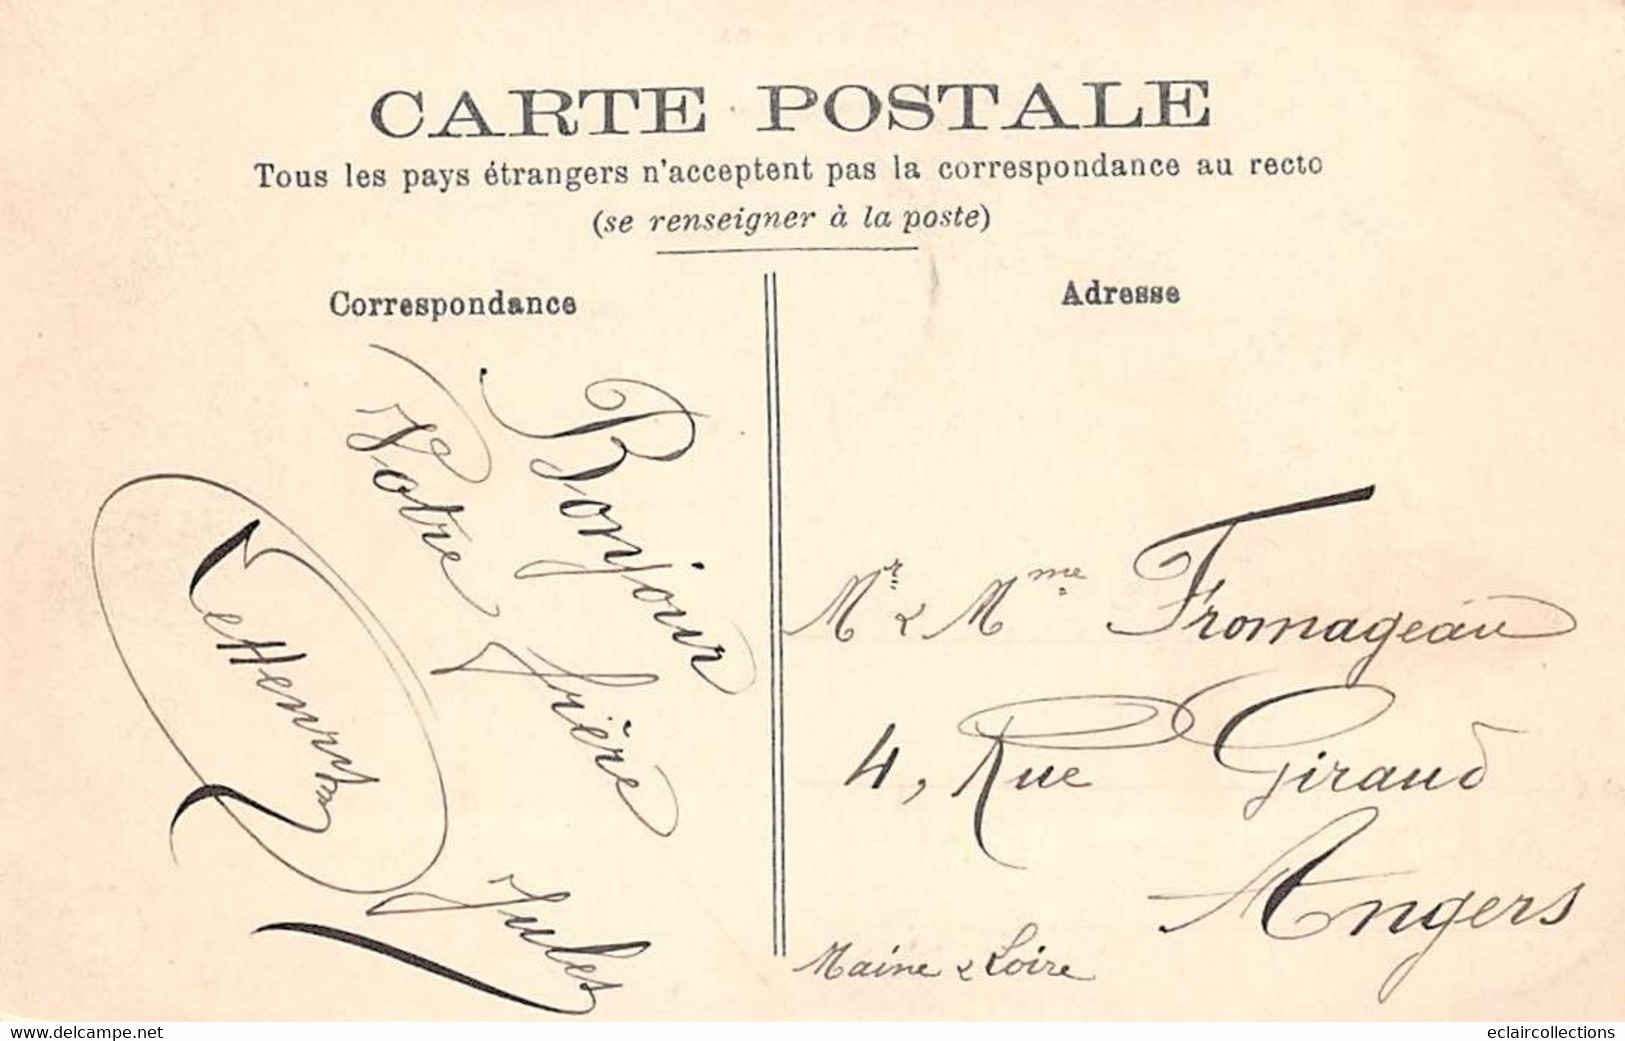 CARTE POSTALE
Tous les pays étrangers n'acceptent pas la correspondance au recto
(se renseigner à la poste)
Correspondance
Bonjour
Votre frère
Jules
Adresse
Mr & Mme Fromageau
4, Rue Giraud
Angers
Maine & Loire
www.delcampe.net
eclaircollections